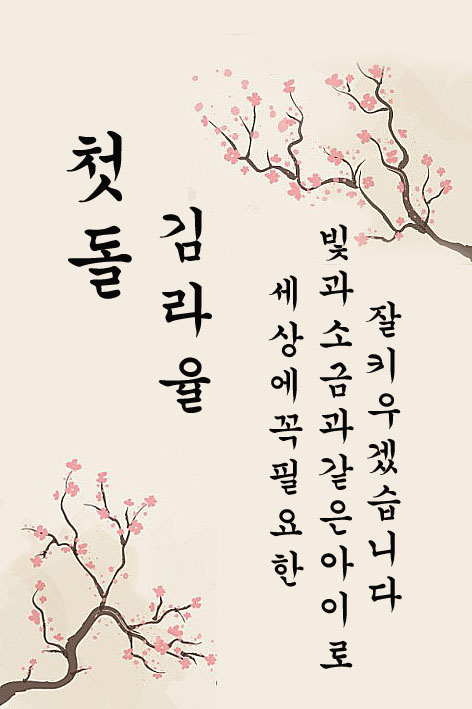 첫돌
김라율
세상에꼭필요한
빛과소금과같은아이로
잘키우겠습니다